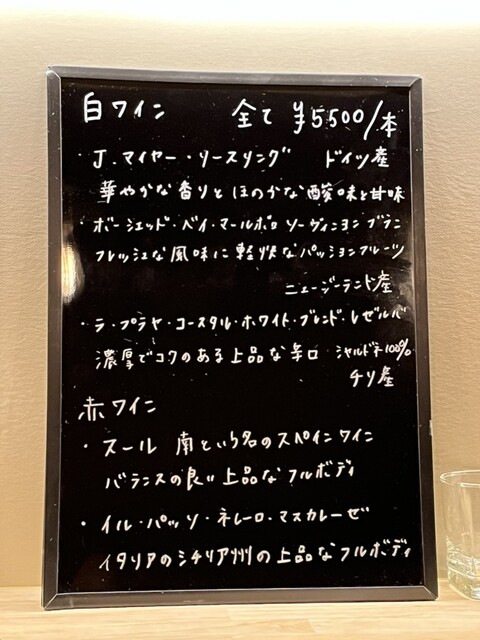 白ワイン 全て ¥5500/本
・J.マイヤー・リースリング ドイツ産
華やかな香りとほのかな酸味と甘味
・ボーシェッド・ベイ・マールボロ ソーヴィニヨン ブラン
フレッシュな風味に軽快なパッションフルーツ
ニュージーランド産
・ラ・プラヤ・コースタル・ホワイト・ブレンド・レゼルバ
濃厚でコクのある上品な辛口 シャルドネ100%
チリ産
赤ワイン
・スール 南という名のスペインワイン
バランスの良い上品なフルボディ
・イル・パッソ・ネレーロ・マスカレーゼ
イタリアのシチリア州の上品なフルボディ